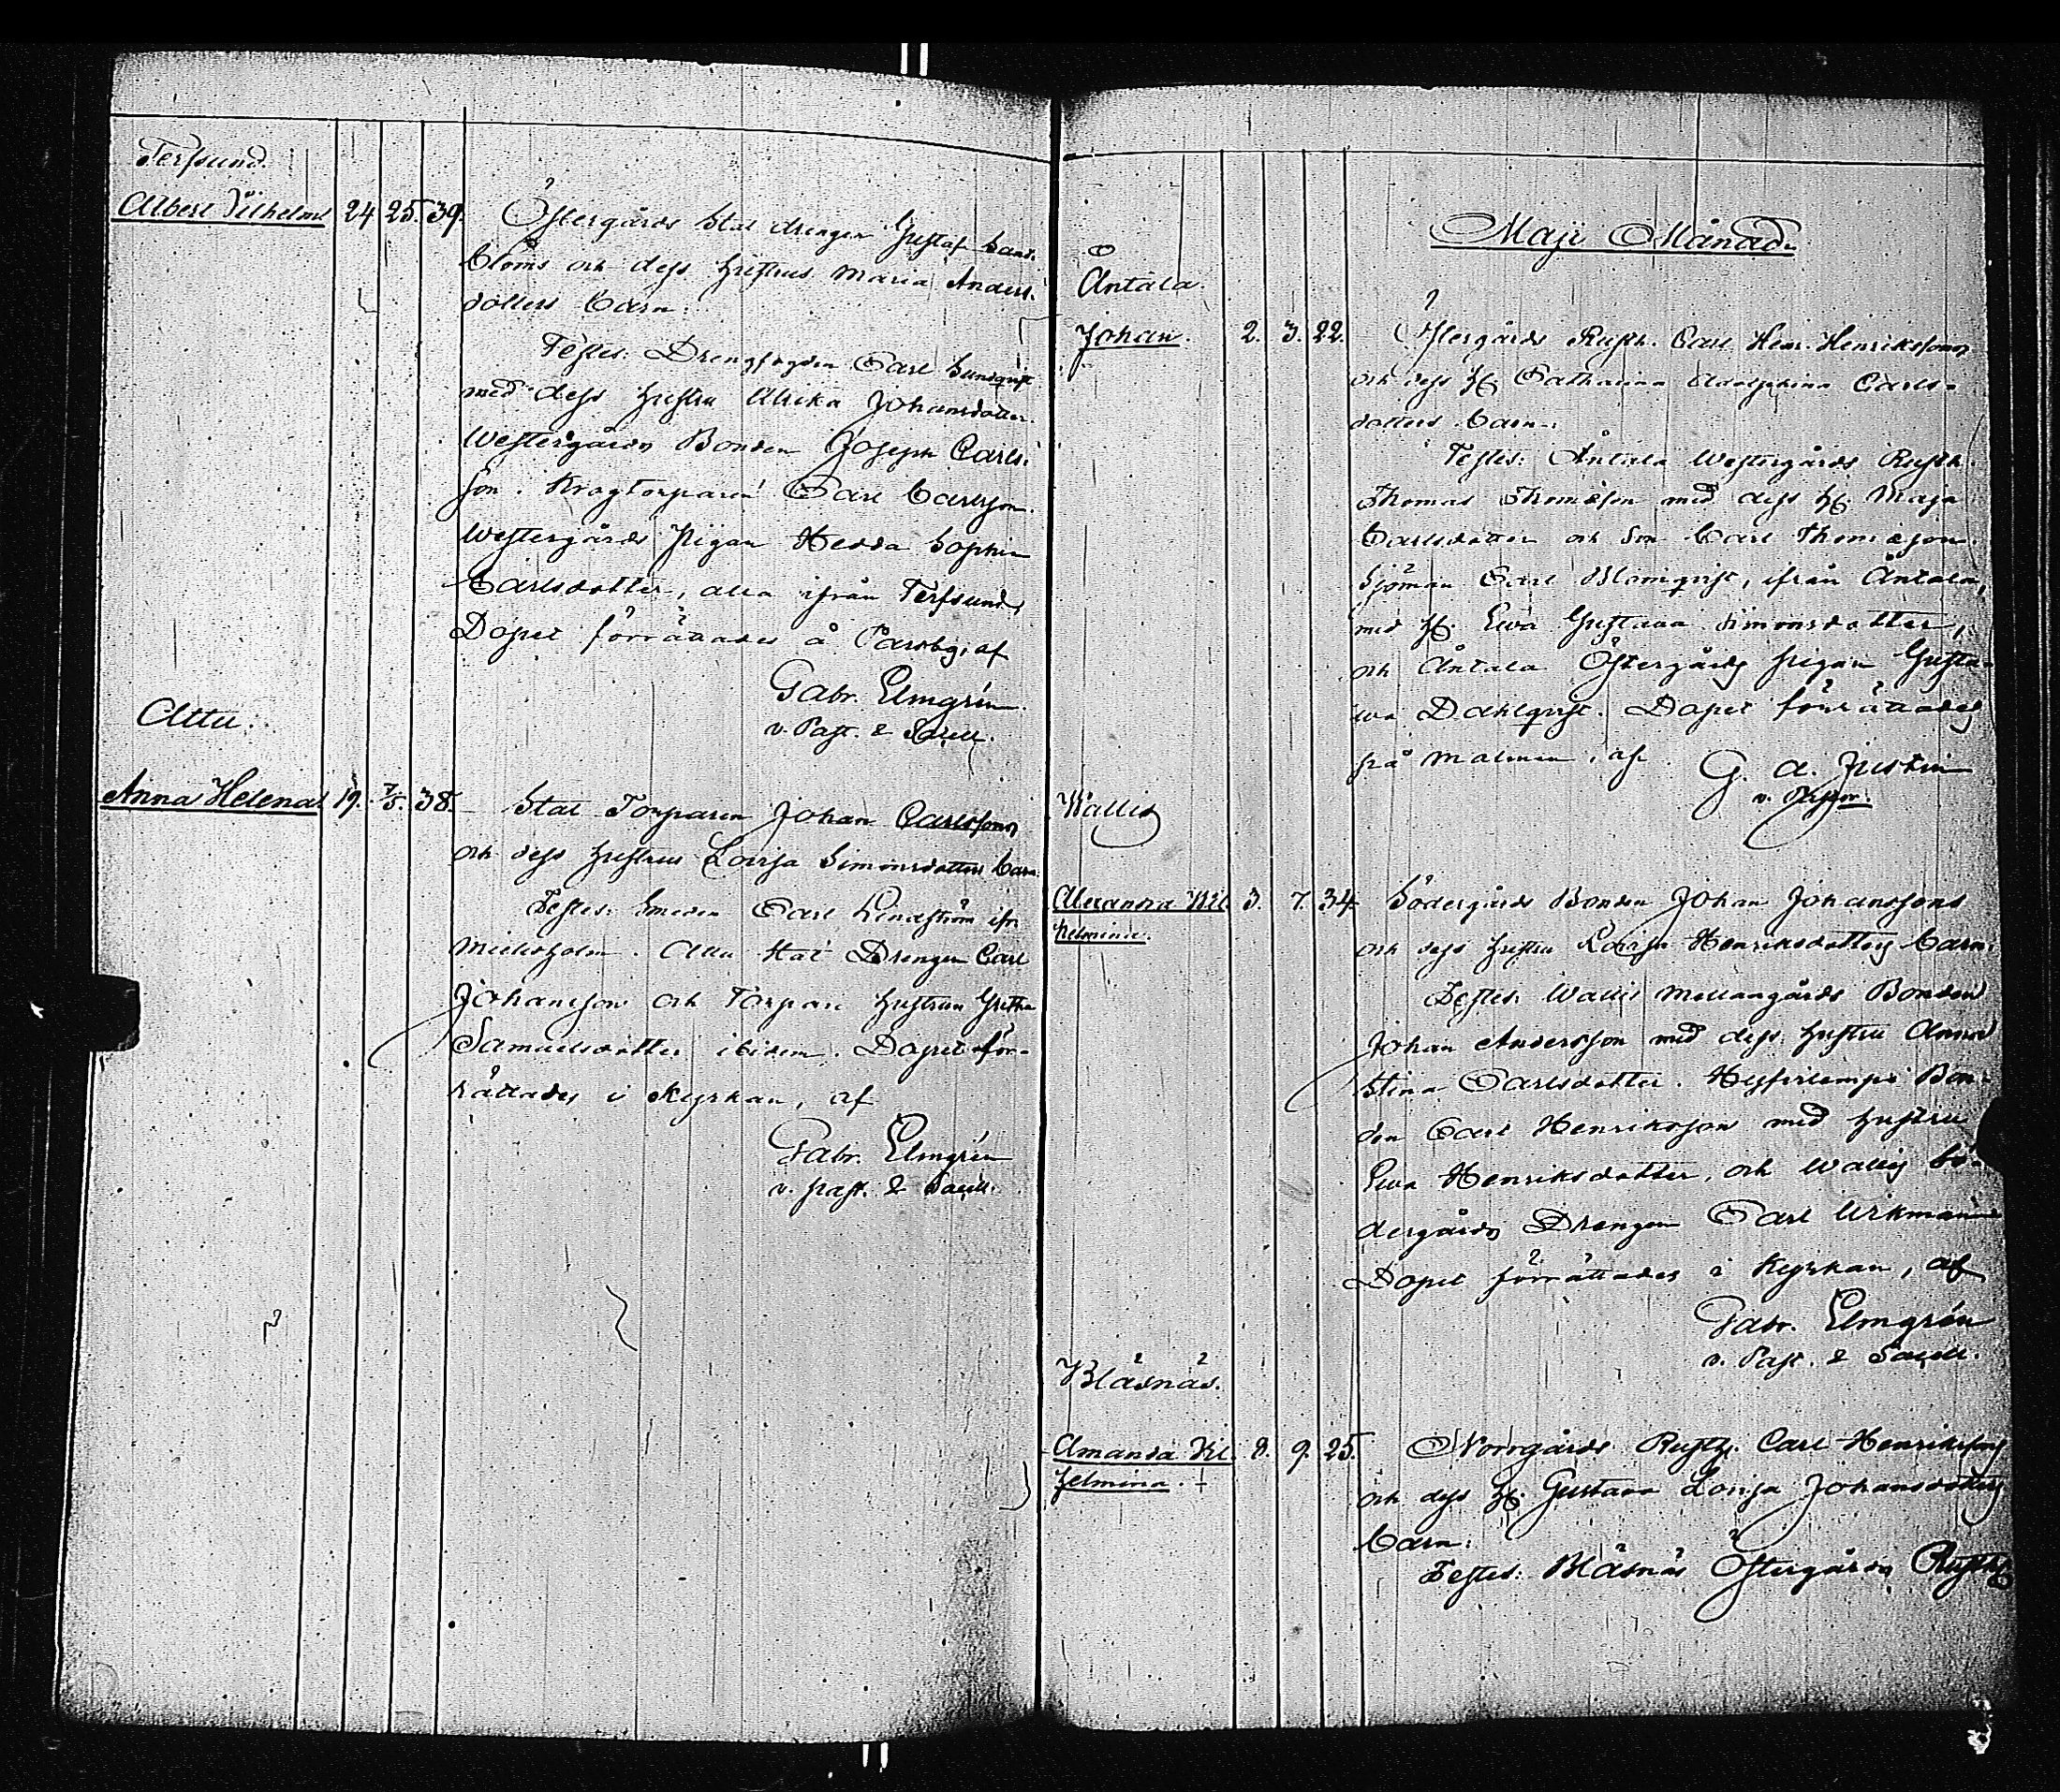 Terfsund.
Albert Vilhelm 24 25. 39. Östergårds Stat drengen Gustaf Sand-
bloms och dess hustrus Maria Anders-
dotters barn.
Testes: Drengfogden Carl Sundqvist
med dess hustru Ulrika Johansdotter.
Westergårds Bonden Joseph Carls-
son. Krogtorparen Carl Carlsson.
Westergårds Pigan Hedda Sophia
Carlsdotter, alla ifrån Terfsund,
Dopet förrättades å Carsby, af
Gabr. Elmgrén
v. Past. & Sacell.
Attu.
Anna Helena 19. 7/5. 38. Stat Torparen Johan Carlssons
och dess hustrus Lovisa Simonsdotters barn.
Testes: Smeden Carl Lindström ifr.
Mielisholm. Attu Stat Drengen Carl
Johansson och Torpare hustrun Gretha
Samuelsdotter ibidem. Dopet för-
rättades i Kyrkan, af
Gabr. Elmgrén
v. past. & Sacell.
Maji Månad.
Åntala.
Johan. 2. 3. 22. Östergårds Rusth. Carl Henr. Henrikssons
och dess H. Catharina Adolphina Carls-
dotters barn.
Testes: Åntala Westergårds Rusth.
Thomas Thomasson med dess H. Maja
Carlsdotter och Son Carl Thomasson.
Sjöman Carl Blomqvist, ifrån Åntala,
med H. Ewa Gustava Simonsdotter,
och Åntala Östergårds pigan Gusta-
wa Dahlqvist. Dopet förrättades
på Malmen, af G. A. Justin
v. Pastor.
Wallis
Alexandra Wil- 3. 7. 34. Södergårds Bonden Johan Johanssons
helmina. och dess hustru Lovisa Henriksdotters barn.
Testes: Wallis Mellangårds Bonden
Johan Andersson med dess hustru Anna
Stina Carlsdotter. Hysvilempi Bon-
den Carl Henriksson med hustru
Ewa Henriksdotter, och Wallis Sö-
dergårds Drengen Carl Wikman
Dopet förrättades i Kyrkan, af
Gabr. Elmgrén
v. Past. & Sacell.
Blåsnäs.
Amanda Vil- 8. 9. 25. Norrgårds Rusth. Carl Henrikssons
helmina. + och dess H. Gustava Lovisa Johansdotters
barn:
Testes: Blåsnäs Östergårds Rusth.